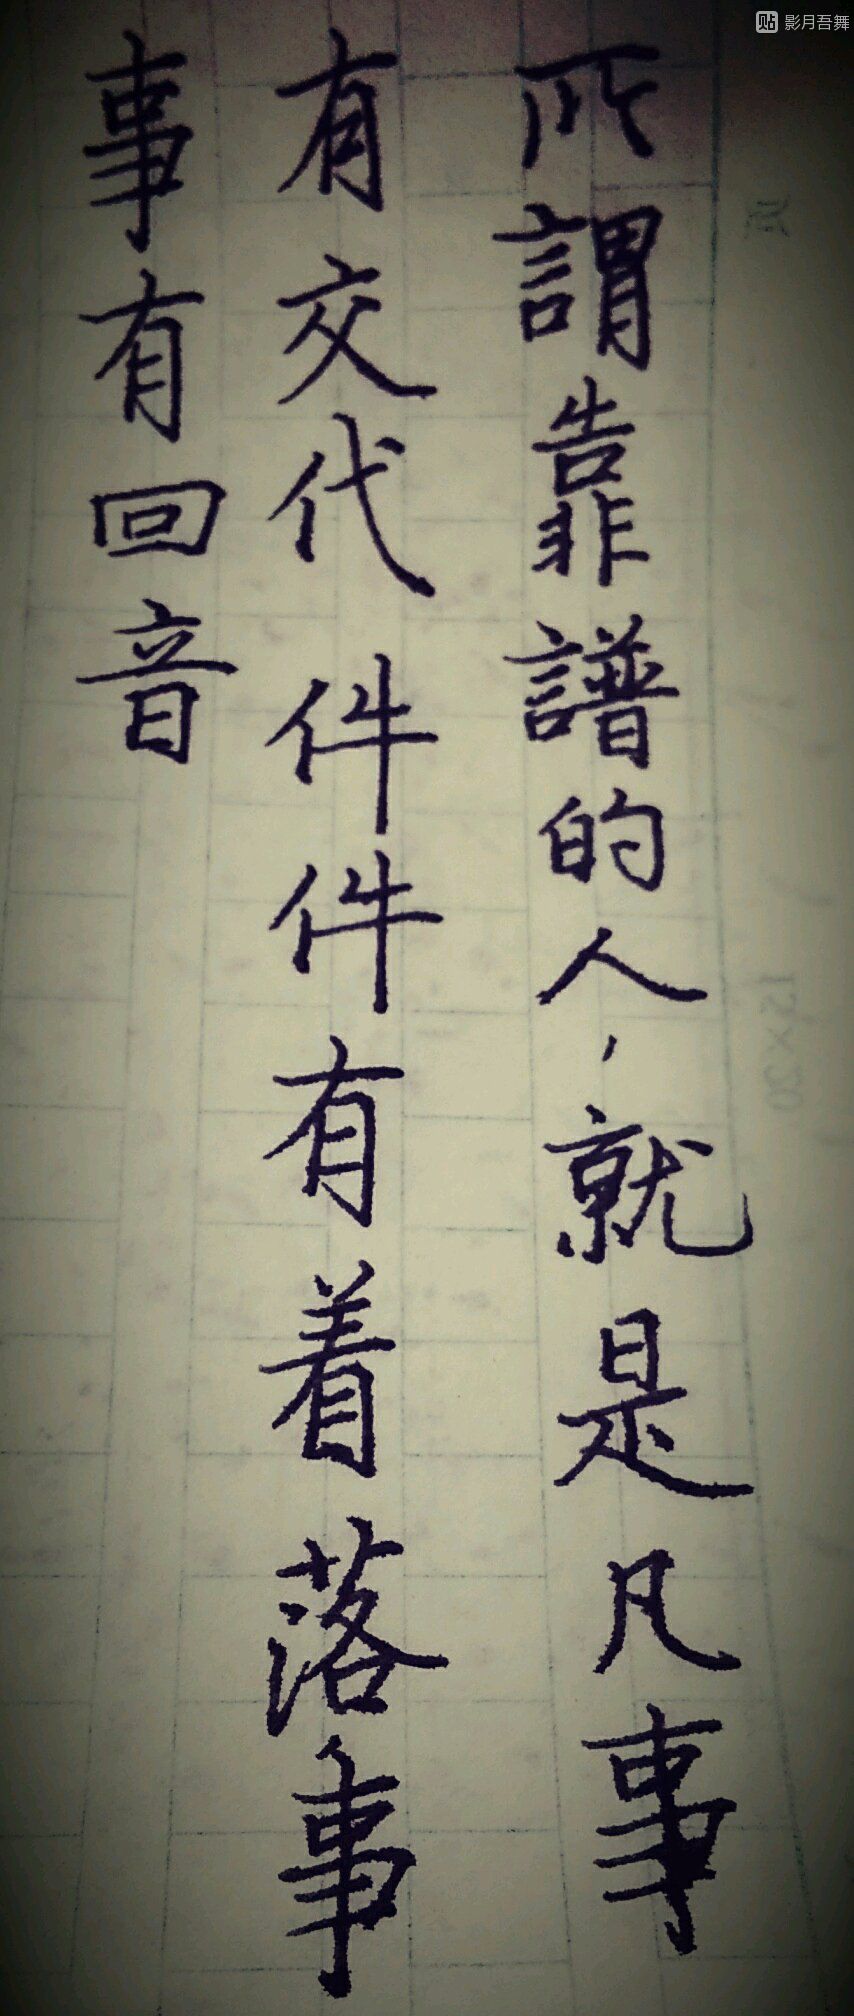 所謂靠譜的人，就是凡事
有交代件件有着落，事
事有回音
贴 影月吾舞